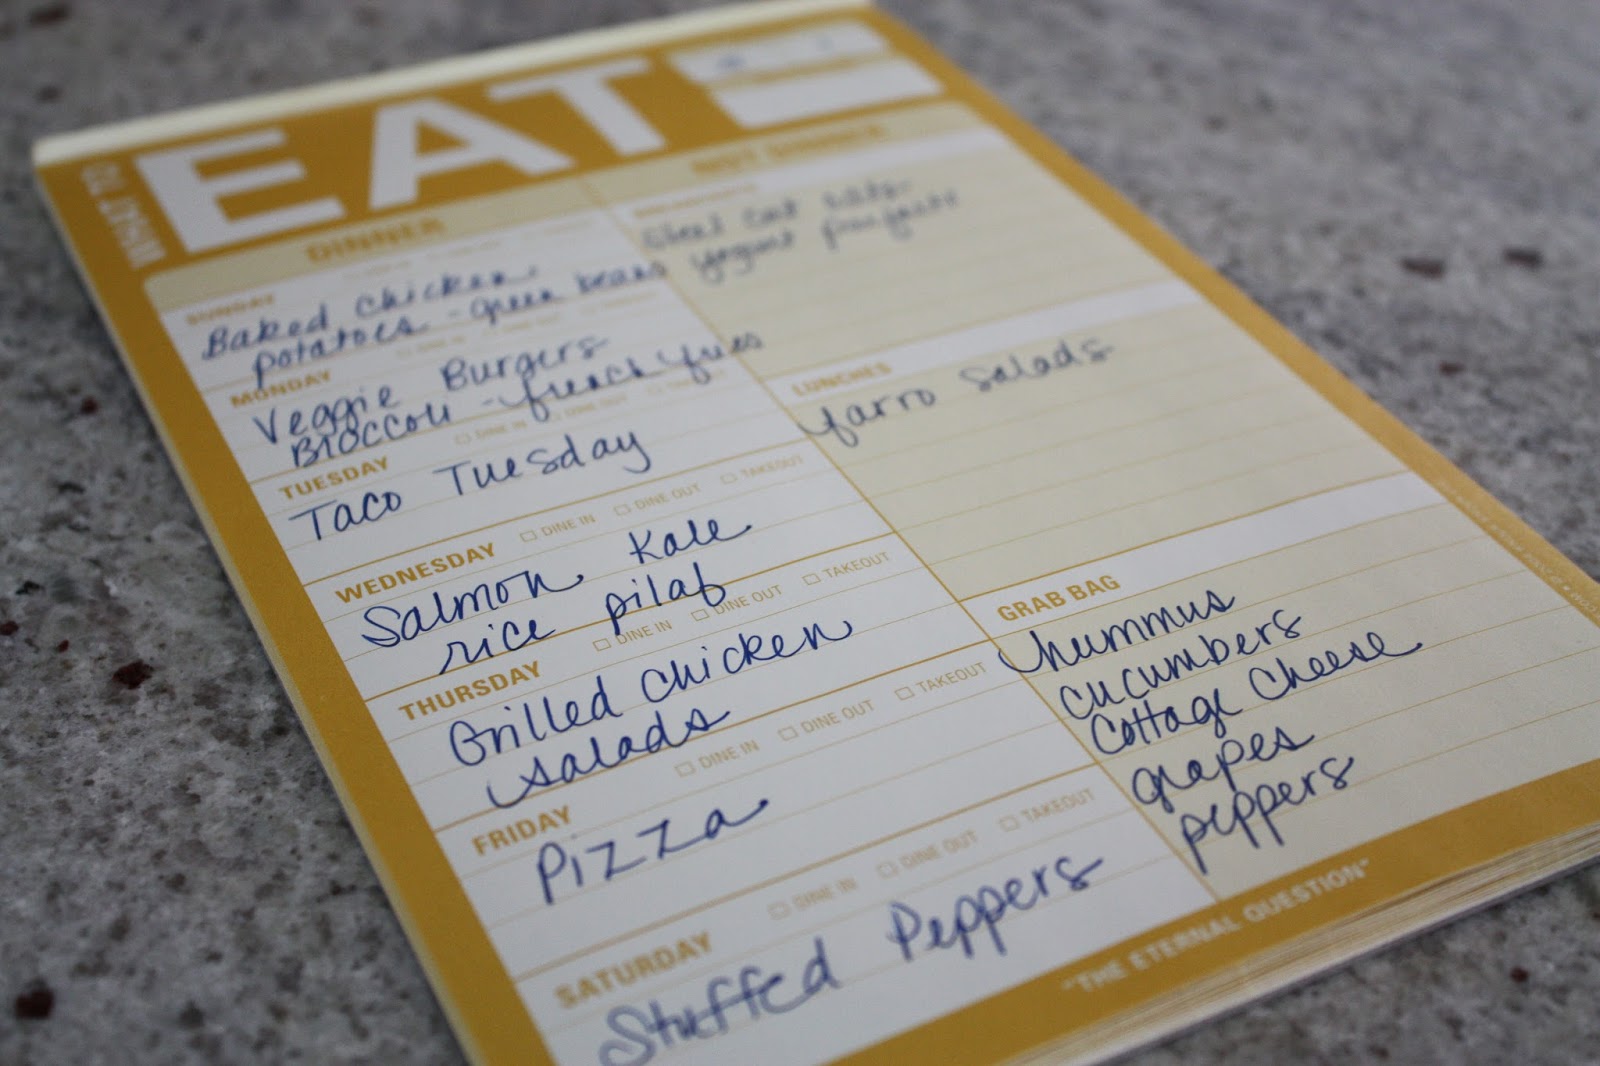 WHAT TO
EAT
DINNER
NOT DINNER
SUNDAY
Baked Chicken
potatoes - green beans
MONDAY
Veggie Burgers
Broccoli - french fries
TUESDAY
Taco Tuesday
DINE IN DINE OUT TAKEOUT
WEDNESDAY
Salmon Kale
rice pilaf
DINE IN DINE OUT TAKEOUT
THURSDAY
Grilled Chicken
salads
DINE IN DINE OUT TAKEOUT
FRIDAY
Pizza
DINE IN DINE OUT TAKEOUT
SATURDAY
Stuffed Peppers
BREAKFASTS
Steel Cut oats
yogurt parfaits
LUNCHES
farro salads
GRAB BAG
hummus
cucumbers
Cottage Cheese
grapes
peppers
"THE ETERNAL QUESTION"